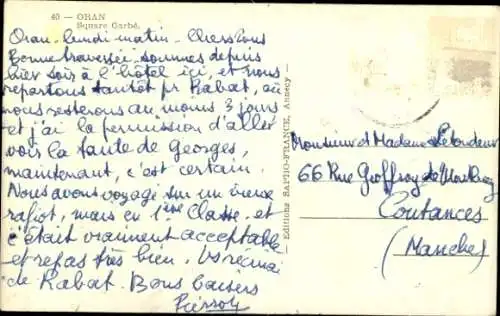 40 — ORAN
Square Garbé.
Oran. lundi matin. Chers tous
Bonne traversée. sommes depuis
hier soir à l'hôtel ici, et nous
repartons tantôt pr Rabat, où
nous resterons au moins 3 jours
et j'ai la permission d'aller
voir la tante de Georges,
maintenant, c'est certain.
Nous avons voyagé sur un vieux
rafiot, mais en 1ère classe. et
c'était vraiment acceptable
et repas très bien. Vs récrirai
de Rabat. Bons baisers
— Editions SAPHO-FRANCE, Annecy —
Monsieur et Madame
66 Rue Geoffroy de
Coutances
(Manche)